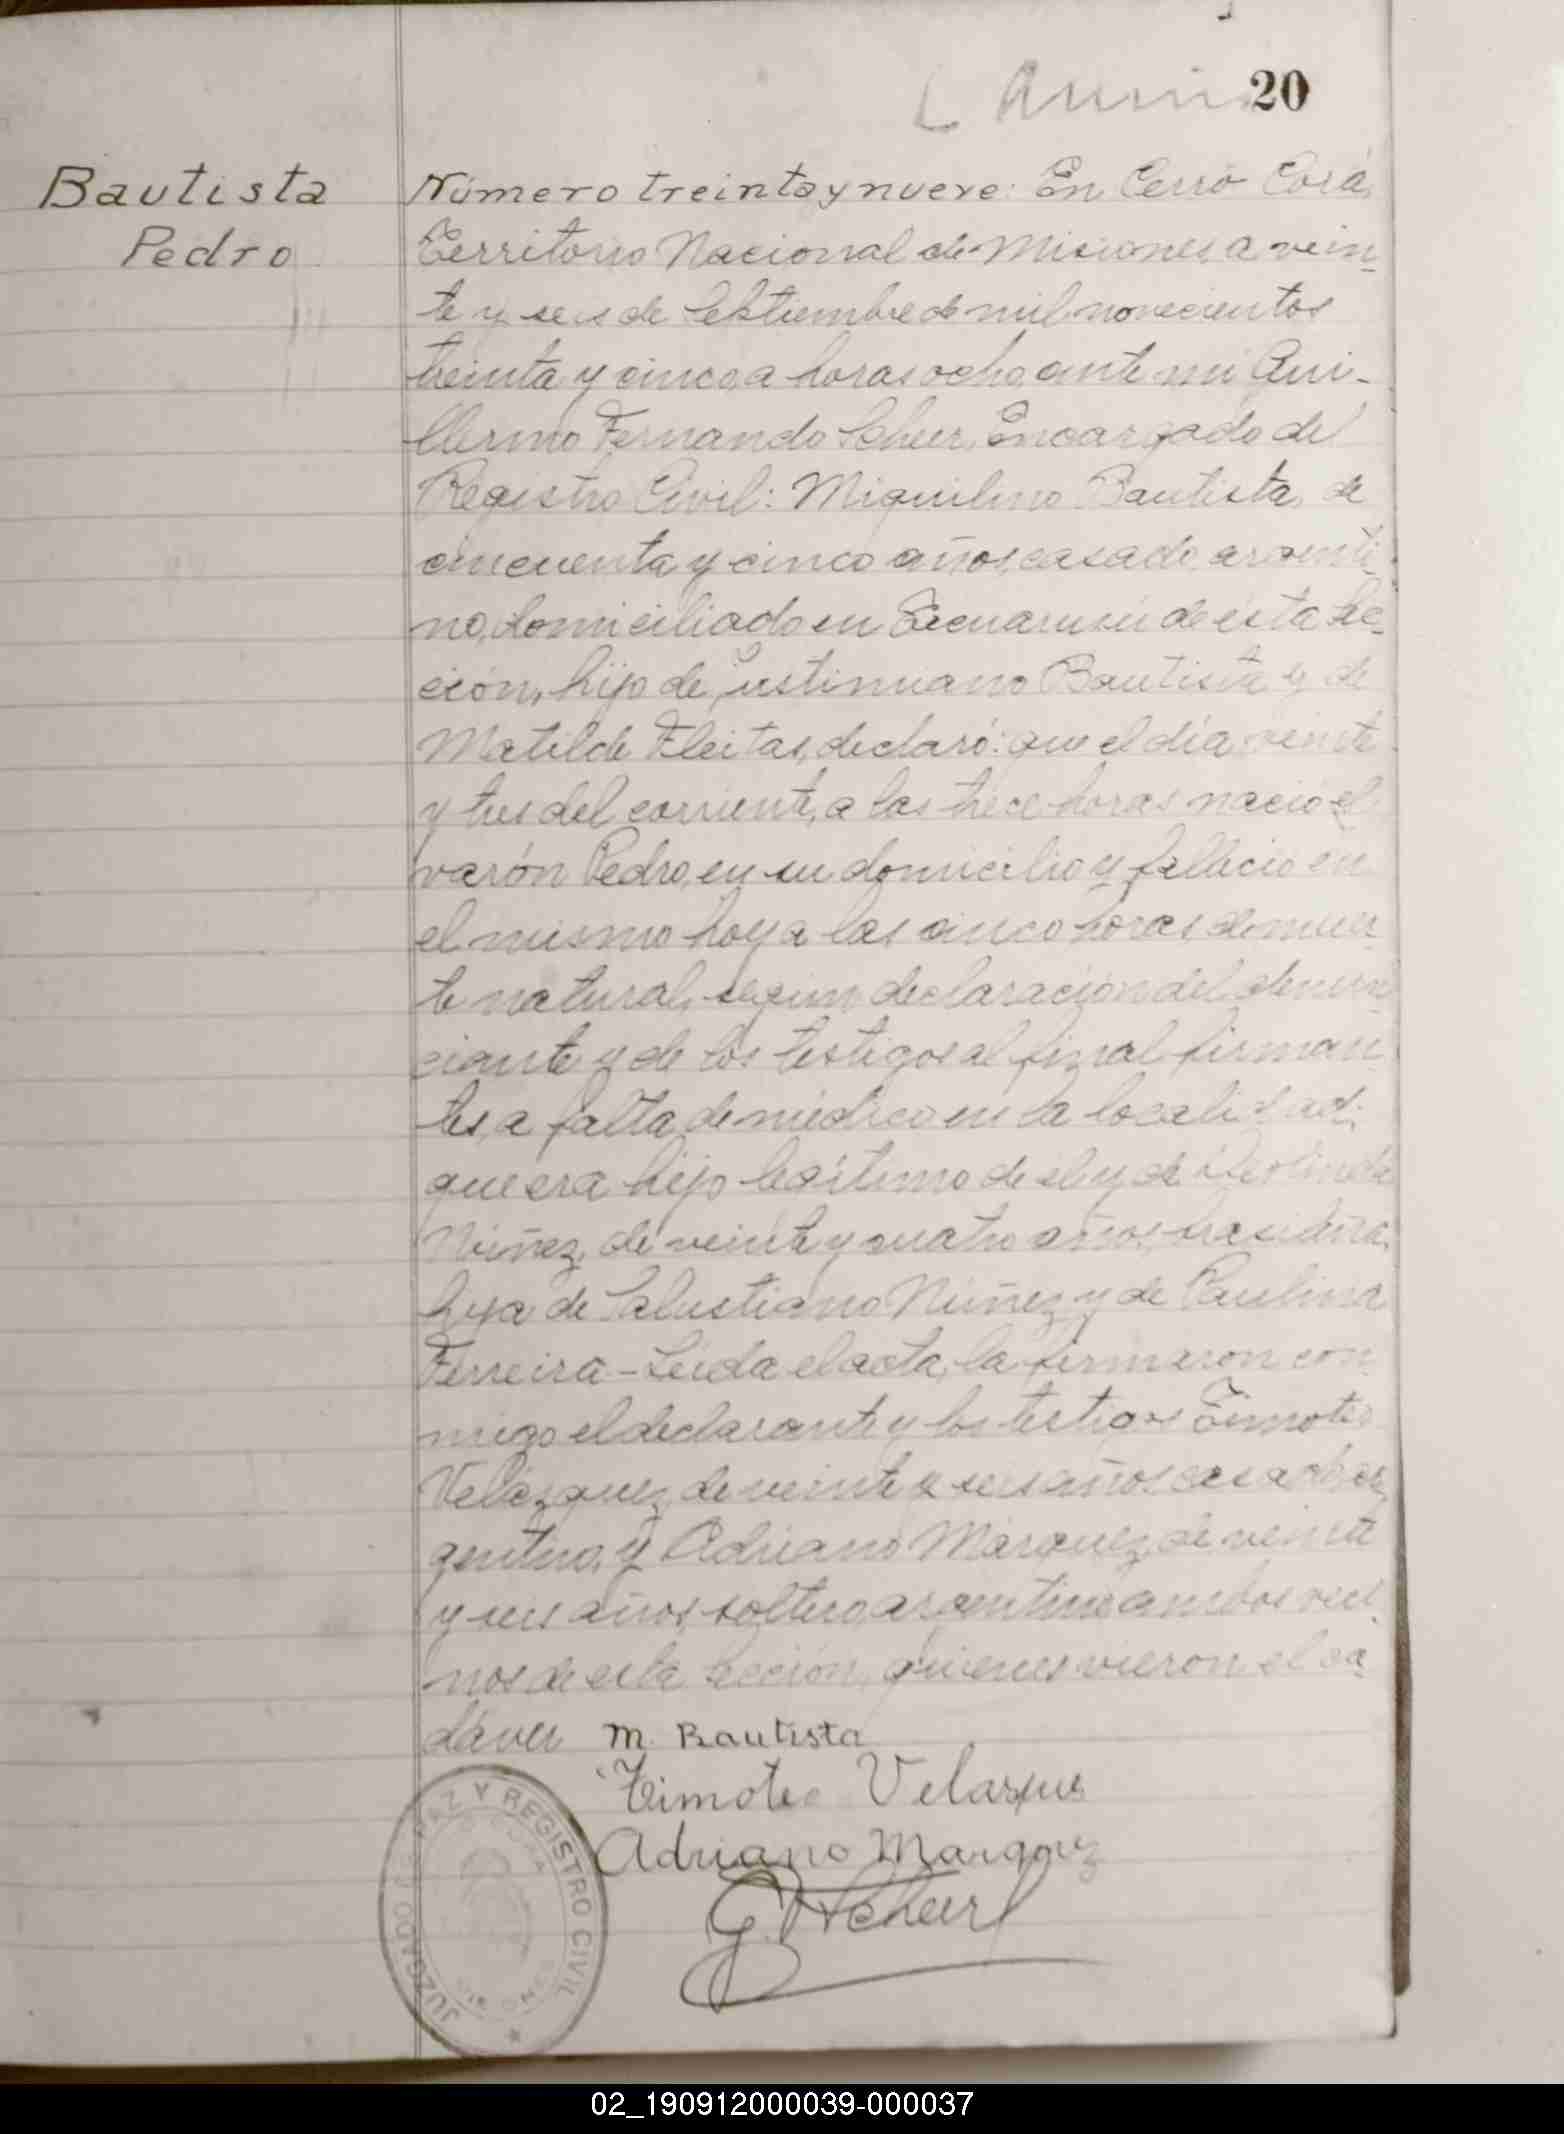 20
Bautista
Pedro
Número treinta y nueve: En Cerro Corá,
Territorio Nacional de Misiones, a vein-
te y seis de Setiembre de mil novecientos
treinta y cinco, a horas ocho, ante mi Gui-
llermo Fernando Scheer, Encargado del
Registro Civil: Miguilino Bautista, de
cincuenta y cinco años, casado, argenti-
no, domiciliado en de ésta Sec-
ción, hijo de Justiniano Bautista y de
Matilde Fleitas, declaró: que el día veinte
y tres del corriente, a las trece horas nació el
varón Pedro, en su domicilio y falleció en
el mismo hoy a las cinco horas de muer-
te natural, segun declaración del denun-
ciante y de los testigos al final firman-
tes, a falta de médico en la localidad;
que era hijo legítimo de él y de
Núñez, de veinte y cuatro años, brasileña,
hija de Salustiano Núñez y de Paulina
Ferreira - Leída el acta, la firmaron con-
migo el declarante y los testigos Timoteo
Velázquez, de veinte y seis años, casado, ar-
gentino, y Adriano Márquez, de veinte
y seis años, soltero, argentino, ambos veci-
nos de esta Sección, quienes vieron el ca-
dáver
M. Bautista
Timoteo Velasques
Adriano Marquez
G. F. Scheer
JUZGADO DE PAZ Y REGISTRO CIVIL
02_190912000039-000037